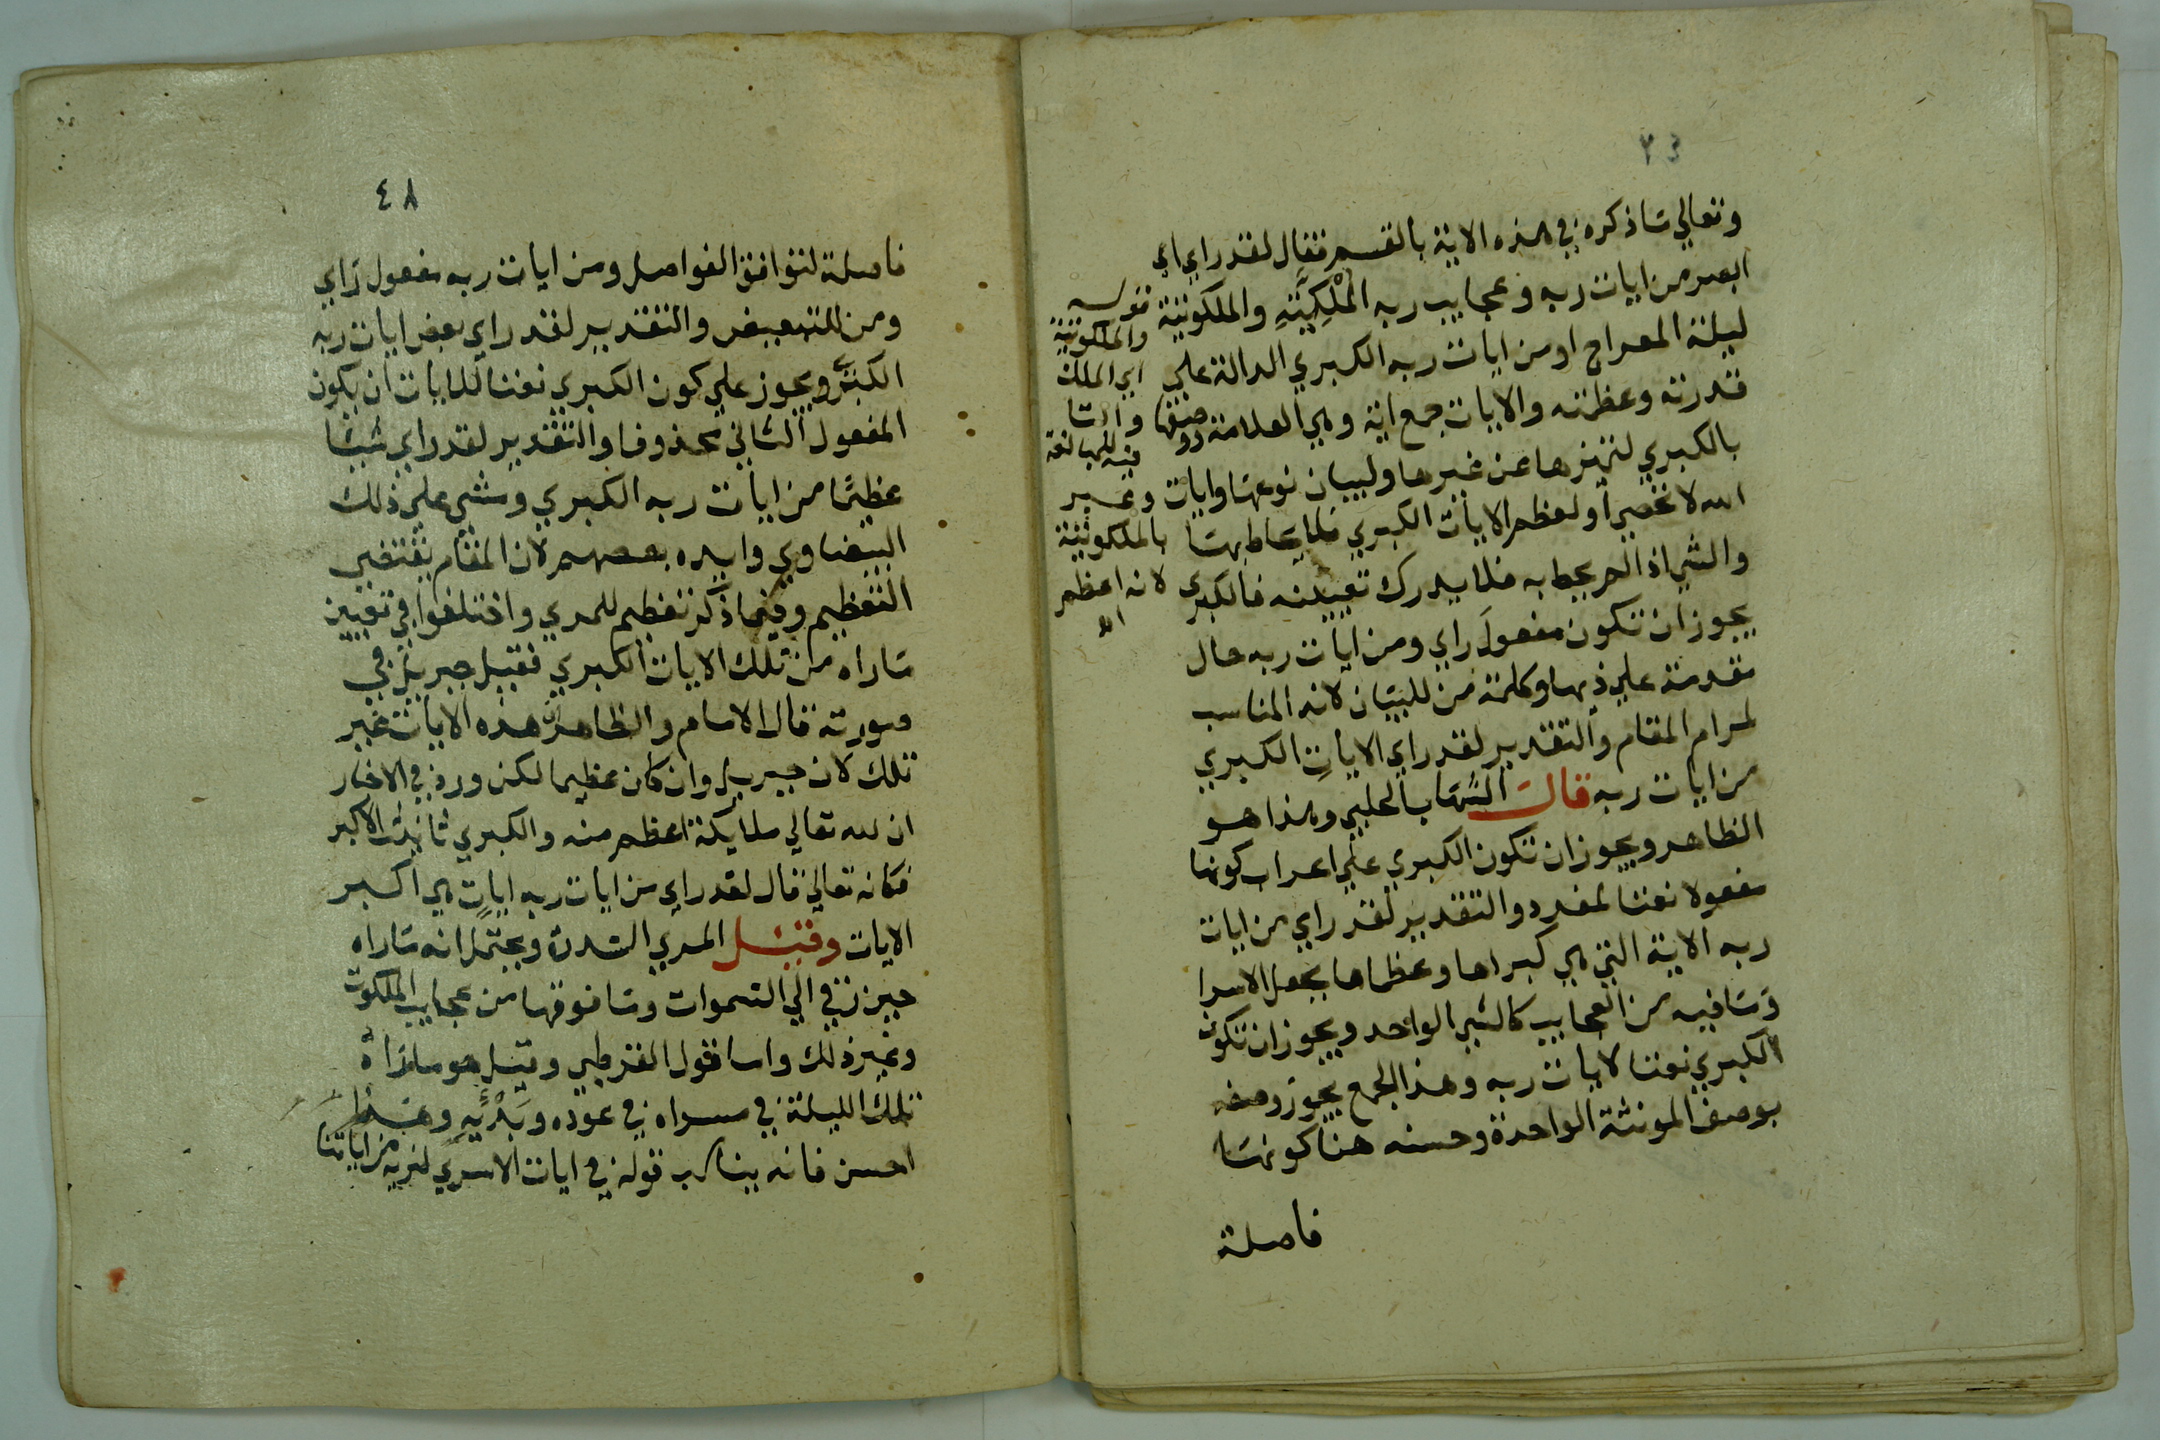 وتعالي ما ذكره في هذه الاية بالقسم فقال لقد راي اي
ابصر من ايات ربه وعجايب ربه الملكية والملكوتية
ليلة المعراج او من ايات ربه الكبري الدالة علي
قدرته وعظمته والايات جمع اية وهي العلامة ووصفها
بالكبري لتميزها عن غيرها ولبيان نوعها وايات
الله لا تحصي او لعظم الايات الكبري فلا يحاط بها
والشي اذا لم يحط به فلا يدرك تعيينه فالكبري
يجوز ان تكون مفعول راي ومن ايات ربه حال
مقدمة علي ذيها وكلمة من للبيان لانه المناسب
لمرام المقام والتقدير لقد راي الايات الكبري
من ايات ربه قال الشهاب الحلبي وهذا هو
الظاهر ويجوز ان تكون الكبري علي اعراب كونها
مفعولا نعتا لمفرد والتقدير لقد راي من ايات
ربه الاية التي هي كبراها وعظماها بجعل الاسرا
وما فيه من العجايب كالشي الواحد ويجوز ان تكون
الكبري نعتا لايات ربه وهذا الجمع يجوز وصفه
بوصف المونثة الواحدة وحسنه هنا كونها
فاصلة
قوله
والملكوتية
اي الملك
والتا
فيه للمبالغة
وعبر
بالملكوتية
لانه اعظم
اه
٤٨
فاصلة لتوافق الفواصل ومن ايات ربه مفعول راي
ومن للتبعيض والتقدير لقد راي بعض ايات ربه
الكبري ويجوز علي كون الكبري نعتا للايات ان يكون
المفعول الثاني محذوفا والتقدير لقد راي شيئا
عظيما من ايات ربه الكبري ومشي علي ذلك
البيضاوي وايده بعضهم لان المقام يقتضي
التعظيم وفيما ذكر تعظيم للمري واختلفوا في تعيين
ما راه من تلك الايات الكبري فقيل جبريل في
صورته قال الامام والظاهر ان هذه الايات غير
تلك لان جبريل وان كان عظيما لكن ورد في الاخبار
ان لله تعالي ملايكة اعظم منه والكبري تانيث الاكبر
فكانه تعالي قال لقد راي من ايات ربه ايات هي اكبر
الايات وقيل المري السدرة ويحتمل انه ما راه
حين رقي الي السموات وما فوقها من عجايب الملكوت
وغير ذلك واما قول القرطبي وقيل هو ما راه
تلك الليلة في مسراه في عوده وبدئه وهذا
احسن فانه يناسب قوله في ايات الاسري لنريه من اياتنا